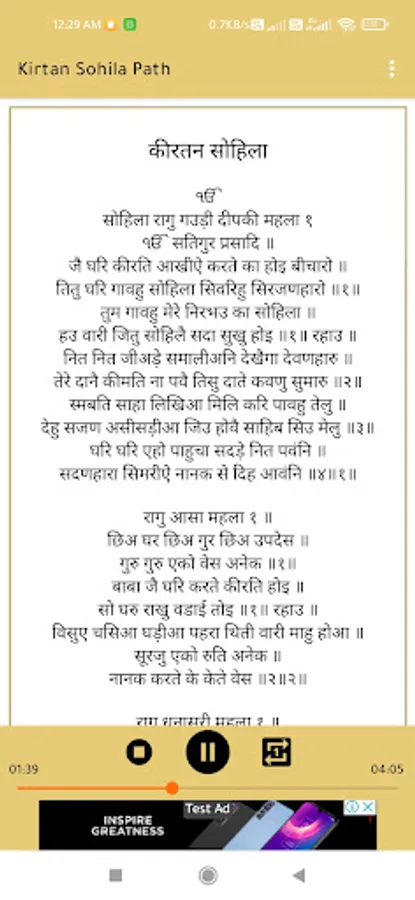 12:29 AM
0.7KB/s
Kirtan Sohila Path
कीरतन सोहिला
ੴ
सोहिला रागु गउड़ी दीपकी महला १
ੴ सतिगुर प्रसादि ॥
जै घरि कीरति आखीऐ करते का होइ बीचारो ॥
तितु घरि गावहु सोहिला सिवरिहु सिरजणहारो ॥१॥
तुम गावहु मेरे निरभउ का सोहिला ॥
हउ वारी जितु सोहिलै सदा सुखु होइ ॥१॥ रहाउ ॥
नित नित जीअड़े समालीअनि देखैगा देवणहारु ॥
तेरे दानै कीमति ना पवै तिसु दाते कवणु सुमारु ॥२॥
स्मबति साहा लिखिआ मिलि करि पावहु तेलु ॥
देहु सजण असीसड़ीआ जिउ होवै साहिब सिउ मेलु ॥३॥
घरि घरि एहो पाहुचा सदड़े नित पवंनि ॥
सदणहारा सिमरीऐ नानक से दिह आवंनि ॥४॥१॥
रागु आसा महला १ ॥
छिअ घर छिअ गुर छिअ उपदेस ॥
गुरु गुरु एको वेस अनेक ॥१॥
बाबा जै घरि करते कीरति होइ ॥
सो घरु राखु वडाई तोइ ॥१॥ रहाउ ॥
विसुए चसिआ घड़ीआ पहरा थिती वारी माहु होआ ॥
सूरजु एको रुति अनेक ॥
नानक करते के केते वेस ॥२॥२॥
रागु धनासरी महला १ ॥
01:39
04:05
Test Ad
INSPIRE
GREATNESS